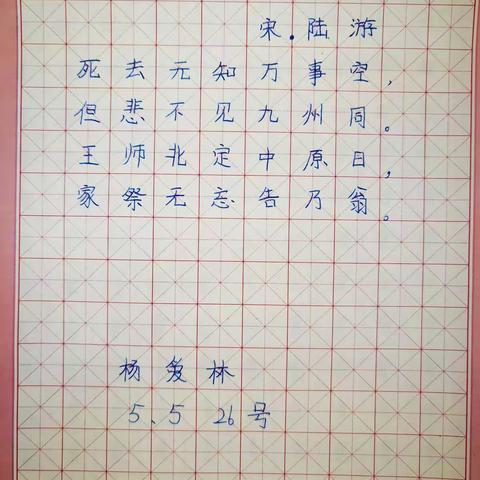 宋.陆游
死去元知万事空,
但悲不见九州同。
王师北定中原日,
家祭无忘告乃翁。
杨 林
5.5 26号